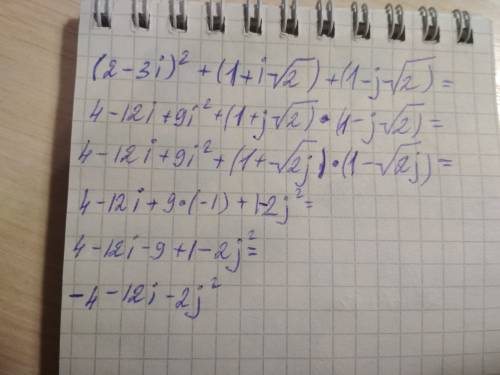 (2-3i)² + (1+i-√2) + (1-j-√2) =
4-12i+9i² + (1+j-√2) • (1-j-√2) =
4-12i+9i² + (1+√2j) • (1-√2j) =
4-12i+9•(-1)+1-2j² =
4-12i-9+1-2j² =
-4-12i-2j²